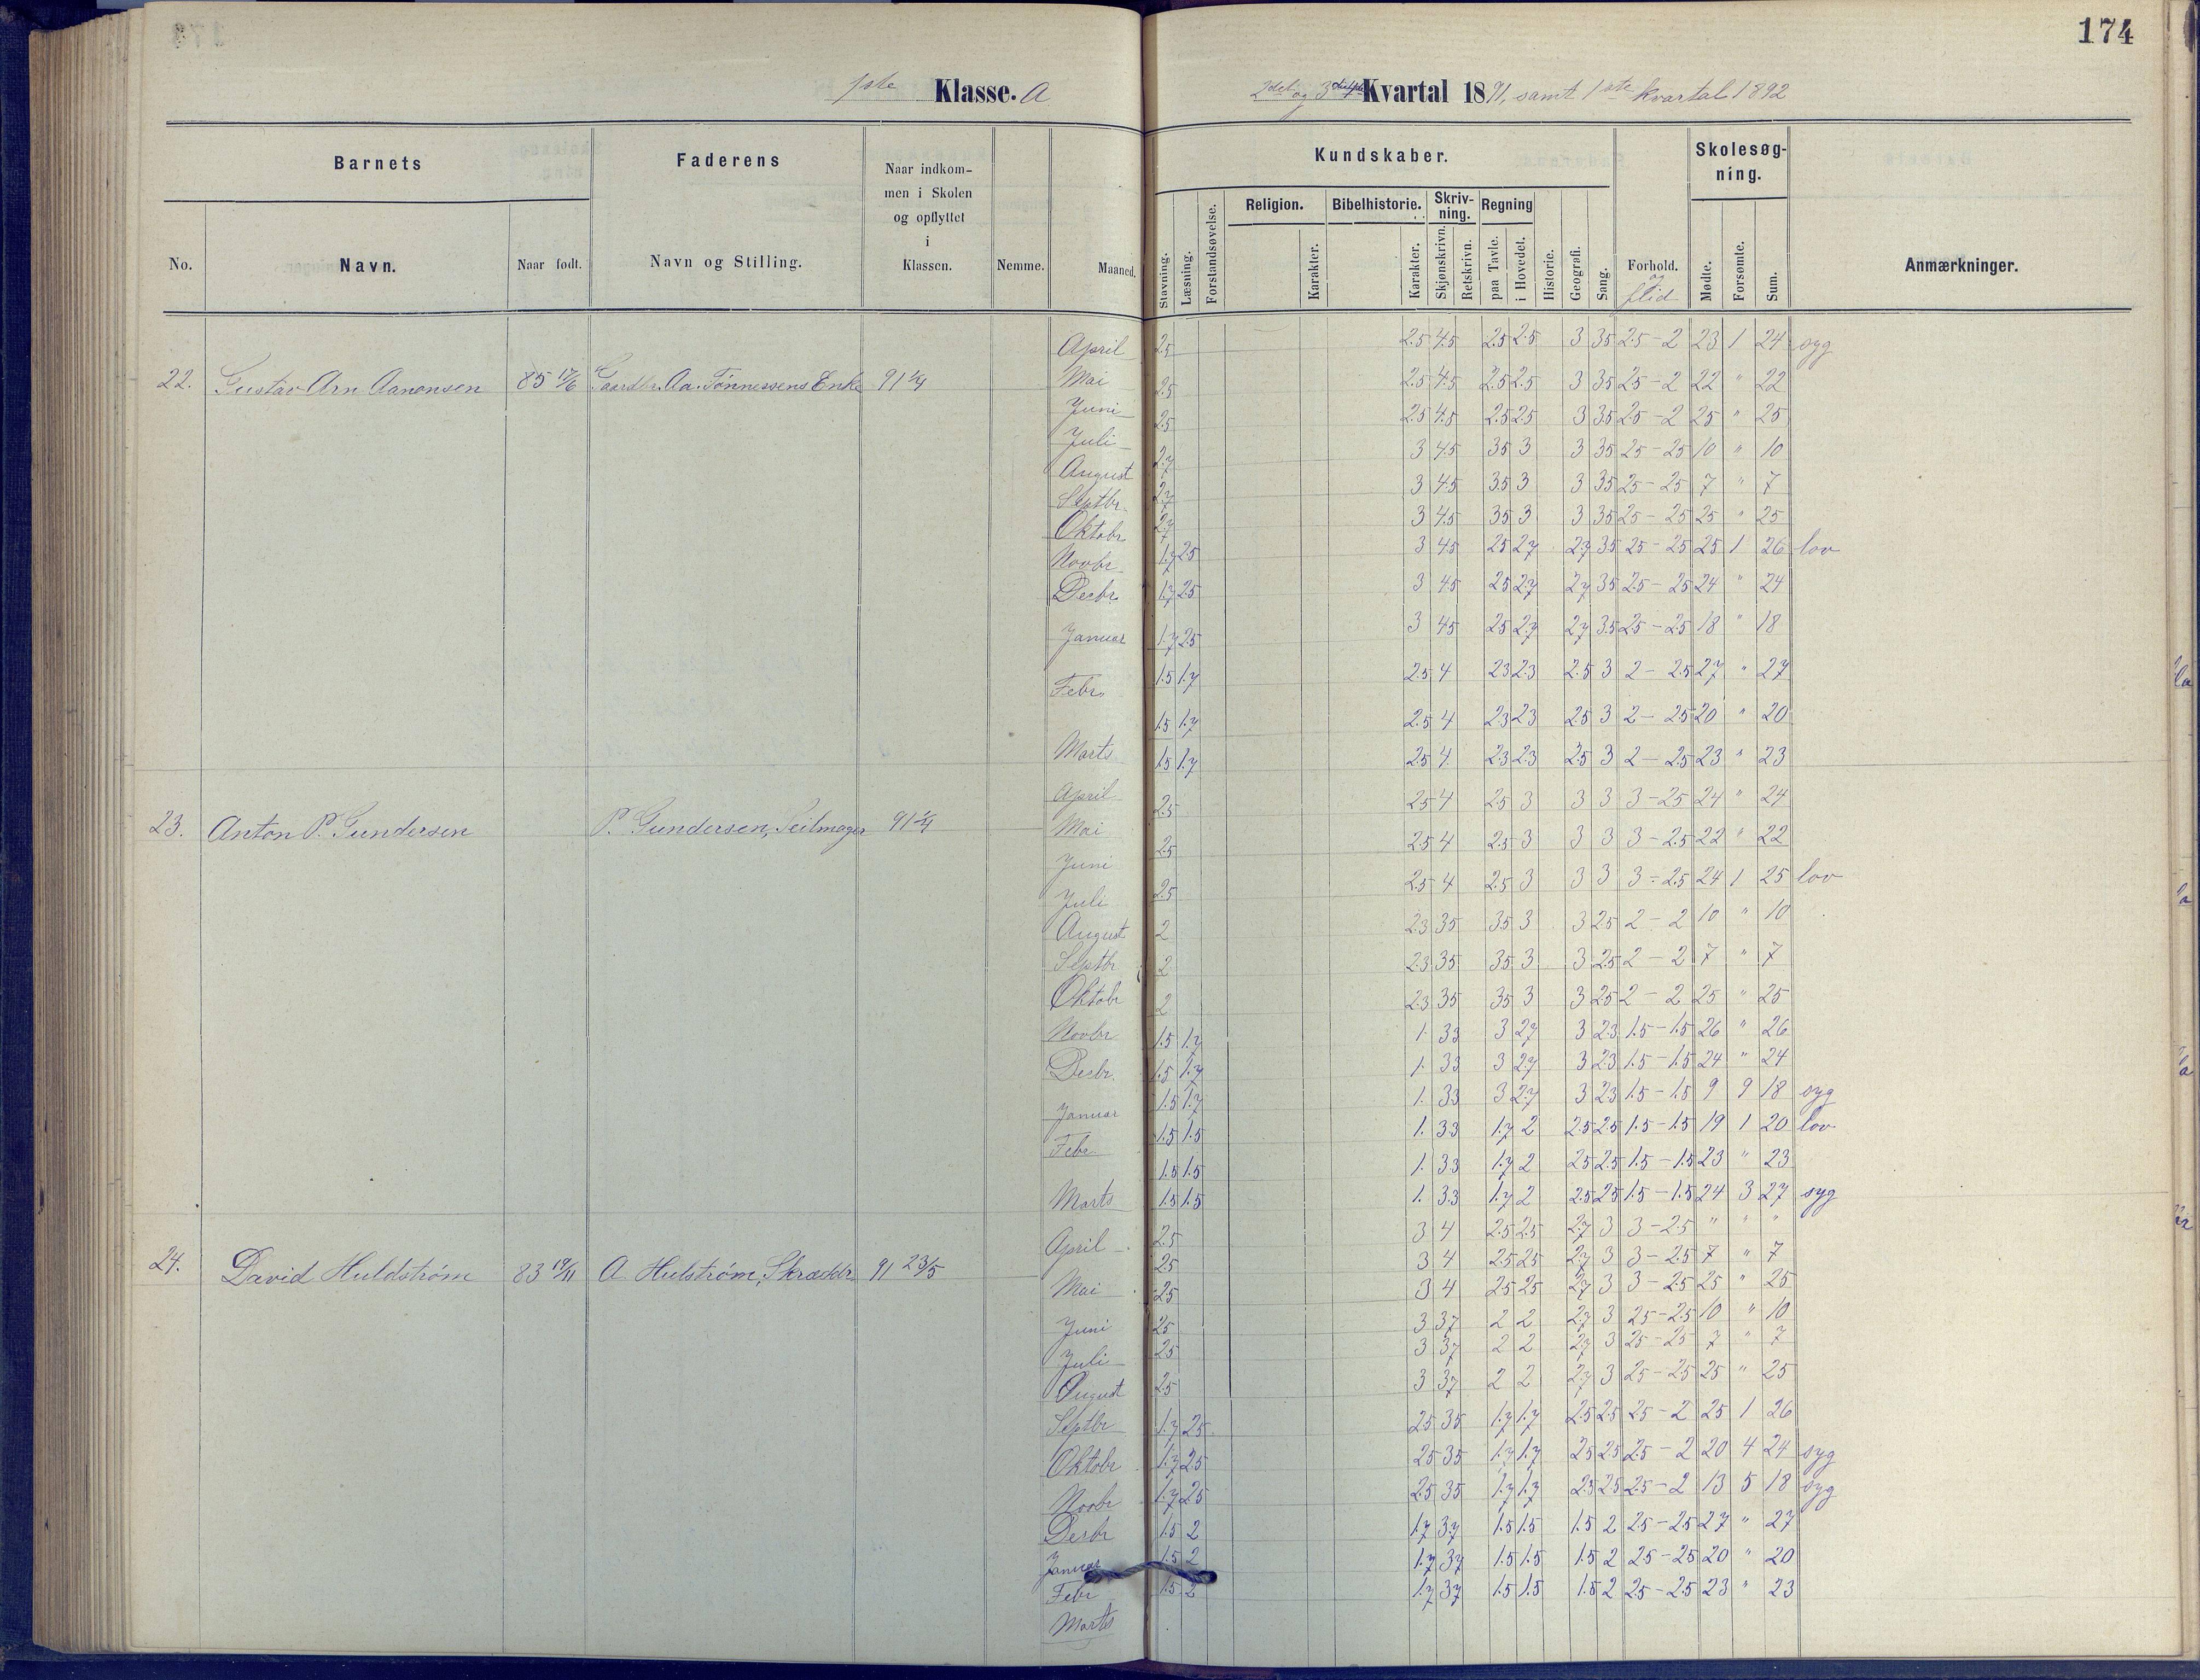 174
1ste Klasse. A
2det og 3die Kvartal 1891, samt 1ste kvartal 1892
Barnets
Faderens
Naar indkommen i Skolen og opflyttet i Klassen.
Kundskaber.
Skolesøgning.
No.
Navn.
Naar født.
Navn og Stilling.
Nemme.
Maaned.
Stavning.
Læsning.
Forstandsøvelse.
Religion.
Karakter.
Bibelhistorie.
Karakter.
Skrivning.
Skjønskrivn.
Retskrivn.
Regning
paa Tavle.
i Hovedet.
Historie.
Geografi.
Sang.
Forhold.
og flid
Mødte.
Forsømte.
Sum.
Anmærkninger.
22. Gustav Arn Aanonsen 85 17/6 Gaardbr. Aa. Tønnessens Enke 91 1/4
April 2.5 2.5 4.5 2.5 2.5 3 3.5 2.5-2 23 1 24 syg
Mai 2.5 2.5 4.5 2.5 2.5 3 3.5 2.5-2 22 " 22
Juni 2.5 2.5 4.5 2.5 2.5 3 3.5 2.5-2 25 " 25
Juli 2.7 3 4.5 3.5 3 3 3.5 2.5-2.5 10 " 10
August 2.7 3 4.5 3.5 3 3 3.5 2.5-2.5 7 " 7
Septbr. 2.7 3 4.5 3.5 3 3 3.5 2.5-2.5 25 " 25
Oktobr 1.7 2.5 3 4.5 2.5 2.7 2.7 3.5 2.5-2.5 25 1 26 lov
Novbr 1.7 2.5 3 4.5 2.5 2.7 2.7 3.5 2.5-2.5 24 " 24
Desbr. 1.7 2.5 3 4.5 2.5 2.7 2.7 3.5 2.5-2.5 18 " 18
Januar 1.5 1.7 2.5 4 2.3 2.3 2.5 3 2-2.5 27 " 27
Febr. 1.5 1.7 2.5 4 2.3 2.3 2.5 3 2-2.5 20 " 20
Marts 1.5 1.7 2.5 4 2.3 2.3 2.5 3 2-2.5 23 " 23
23. Anton P. Gundersen P. Gundersen, Seilmager 91 1/4
April 2.5 2.5 4 2.5 3 3 3 3-2.5 24 " 24
Mai 2.5 2.5 4 2.5 3 3 3 3-2.5 22 " 22
Juni 2.5 2.5 4 2.5 3 3 3 3-2.5 24 1 25 lov
Juli 2 2.3 3.5 3.5 3 3 2.5 2-2 10 " 10
August 2 2.3 3.5 3.5 3 3 2.5 2-2 7 " 7
Septbr 2 2.3 3.5 3.5 3 3 2.5 2-2 25 " 25
Oktobr 1.5 1.7 1. 3.3 3 2.7 3 2.3 1.5-1.5 26 " 26
Novbr 1.5 1.7 1. 3.3 3 2.7 3 2.3 1.5-1.5 24 " 24
Desbr. 1.5 1.7 1. 3.3 3 2.7 3 2.3 1.5-1.5 9 9 18 syg
Januar 1.5 1.5 1. 3.3 1.7 2 2.5 2.5 1.5-1.5 19 1 20 lov
Febr. 1.5 1.5 1. 3.3 1.7 2 2.5 2.5 1.5-1.5 23 " 23
Marts 1.5 1.5 1. 3.3 1.7 2 2.5 2.5 1.5-1.5 24 3 27 syg
24. David Huldstrøm 83 19/11 A Hulstrøm, Skrædder 91 23/5
April 2.5 3 4 2.5 2.5 2.7 3 3-2.5 " " "
Mai 2.5 3 4 2.5 2.5 2.7 3 3-2.5 7 " 7
Juni 2.5 3 4 2.5 2.5 2.7 3 3-2.5 25 " 25
Juli 2.5 3 3.7 2 2 2.7 3 2.5-2.5 10 " 10
August 2.5 3 3.7 2 2 2.7 3 2.5-2.5 7 " 7
Septbr 2.5 3 3.7 2 2 2.7 3 2.5-2.5 25 " 25
Oktobr 1.7 2.5 2.5 3.5 1.7 1.7 2.5 2.5 2.5-2 25 1 26
Novbr 1.7 2.5 2.5 3.5 1.7 1.7 2.5 2.5 2.5-2 20 4 24 syg
Desbr 1.7 2.5 2.5 3.5 1.7 1.7 2.5 2.5 2.5-2 13 5 18 syg
Januar 1.5 2 1.7 3.7 1.5 1.5 1.5 2 2.5-2.5 27 " 27
Febr 1.5 2 1.7 3.7 1.5 1.5 1.5 2 2.5-2.5 20 " 20
Marts 1.5 2 1.7 3.7 1.5 1.5 1.5 2 2.5-2.5 23 " 23